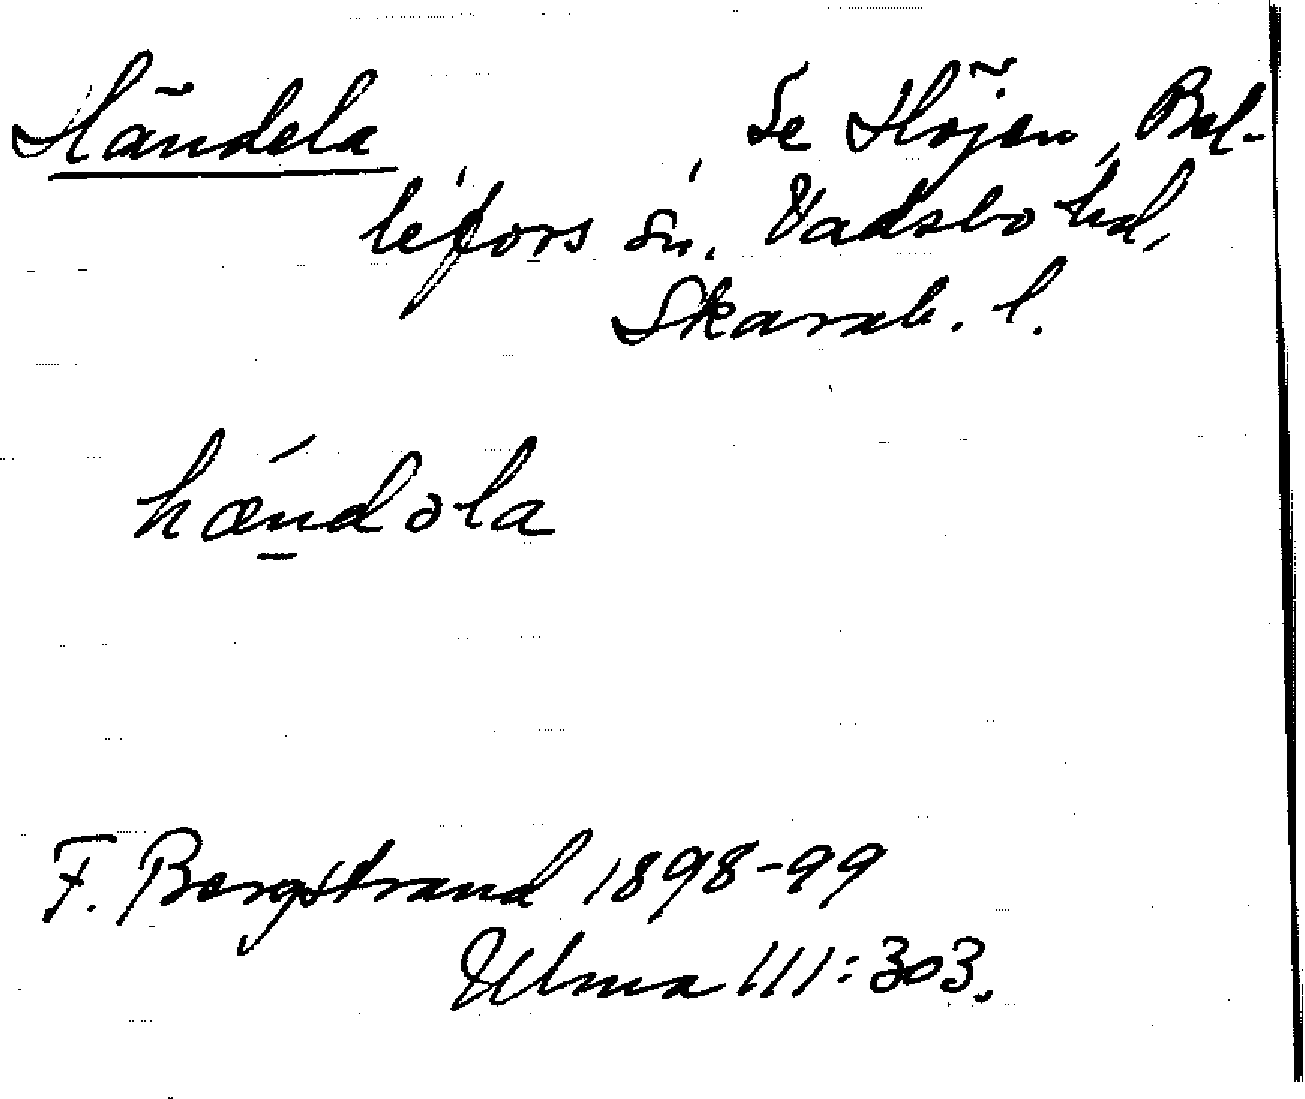 Händela, Se Höjen, Bel-
lefors sn. Vadsbo hd,
Skarab. l.
hændəla
F. Bergstrand 1898-99
Ulma 111:303.